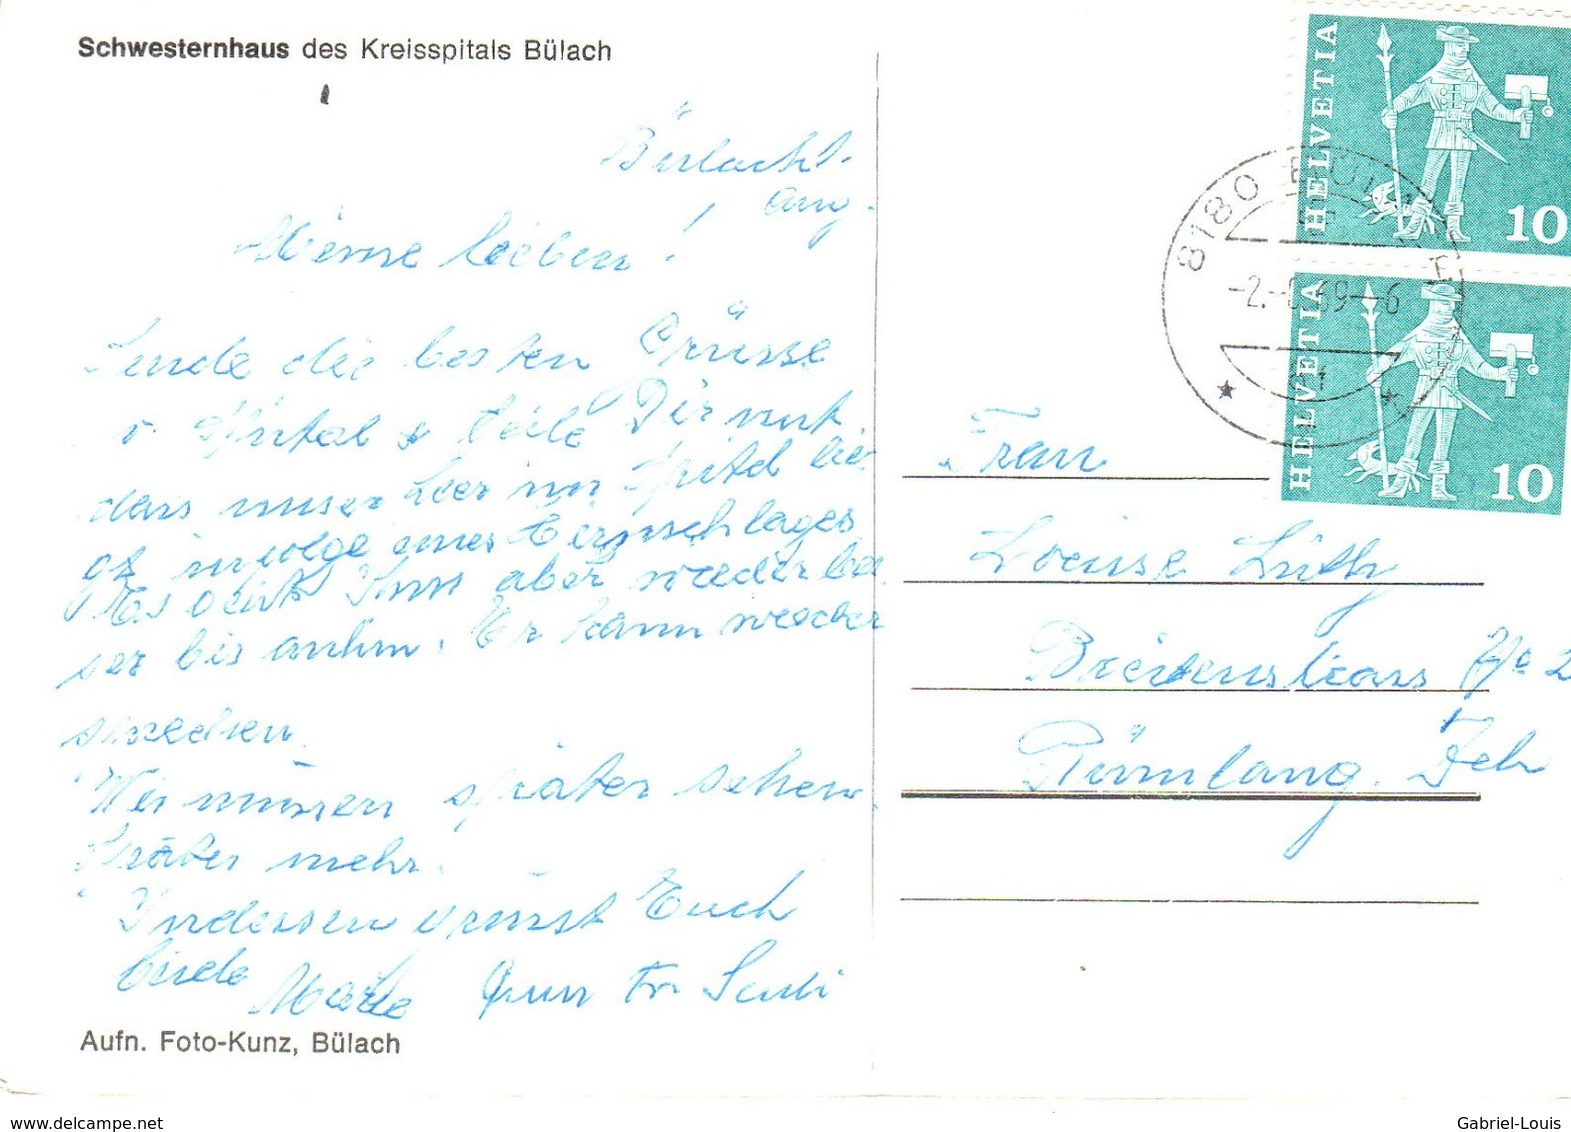 Schwesternhaus des Kreisspitals Bülach
Bülach 1.
Aug.
Meine lieben!
Sende die besten Grüsse
v. Spital & teile Dir mit
dass unser Leer im Spital lie
gt infolge eines Hirnschlages
Es geht Ihm aber wieder bes
ser bis anhin. Er kann wieder
sprechen.
Wir müssen später sehen.
Später mehr.
Indessen grüsst Euch
beide Marie
HELVETIA
10
HELVETIA
10
8180 BÜLACH
-2.-8.69--6
Frau
Louise Lüthy
Breitenstrass No 2
Rümlang. Zch
Aufn. Foto-Kunz, Bülach
delcampe.net
Gabriel-Louis